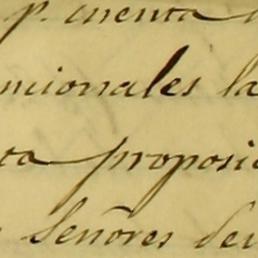 p. cuenta
ncionales la
ta proposic
Señores de